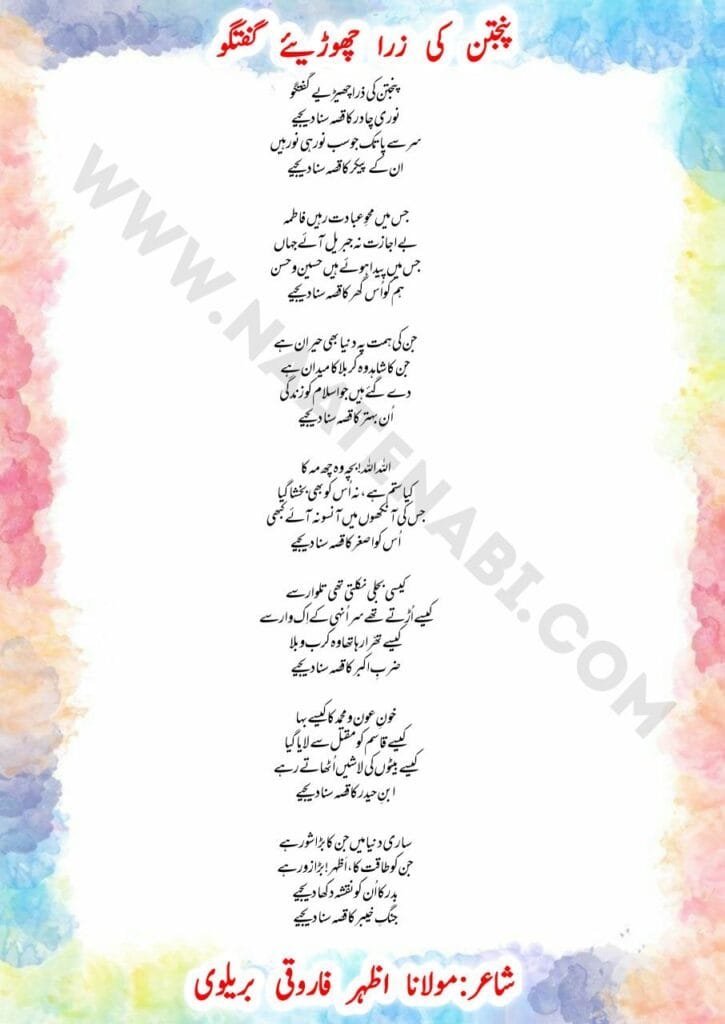 پنجتن کی زرا چھوڑیئے گفتگو
پنجتن کی ذرا چھیڑیے گفتگو
نوری چادر کا قصہ سنا دیجیے
سر سے پا تک جو سب نور ہی نور ہیں
ان کے پیکر کا قصہ سنا دیجیے
جس میں محوِ عبادت رہیں فاطمہ
بے اجازت نہ جبریل آئے جہاں
جس میں پیدا ہوئے ہیں حسین و حسن
ہم کو اُس گھر کا قصہ سنا دیجیے
جن کی ہمت پہ دنیا بھی حیران ہے
جن کا شاہد وہ کربلا کا میدان ہے
دے گئے ہیں جو اسلام کو زندگی
اُن بہتر کا قصہ سنا دیجیے
اللہ اللہ! بچہ وہ چھ مہ کا
کیا ستم ہے، نہ اُس کو بھی بخشا گیا
جس کی آنکھوں میں آنسو نہ آئے کبھی
اُس کو اصغر کا قصہ سنا دیجیے
کیسی بجلی نکلتی تھی تلوار سے
کیسے اُڑتے تھے سر اُنہی کے اِک وار سے
کیسے تھرا رہا تھا وہ کرب و بلا
ضربِ اکبر کا قصہ سنا دیجیے
خونِ عون و محمد کا کیسے بہا
کیسے قاسم کو مقتل سے لایا گیا
کیسے بیٹوں کی لاشیں اُٹھاتے رہے
ابنِ حیدر کا قصہ سنا دیجیے
ساری دنیا میں جن کا بڑا شور ہے
جن کو طاقت کا، اظہر! بڑا زور ہے
بدر کا اُن کو نقشہ دکھا دیجیے
جنگِ خیبر کا قصہ سنا دیجیے
شاعر:مولانا اظہر فاروقی بریلوی
WWW.NAATENABI.COM